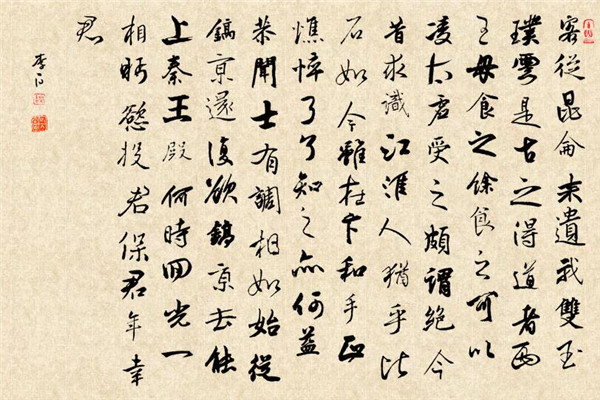 客從昆侖來遺我雙玉
璞雲是古之得道者西
王母食之餘食之可以
凌太虛受之頗謂絕今
昔求識江淮人猶乎比
石如今雖在卞和手正
憔悴了了知之亦何益
恭聞士有調相如始從
鎬京還復欲鎬京去能
上秦王殿何時回光一
相眄慾投君保君年幸
君
李白